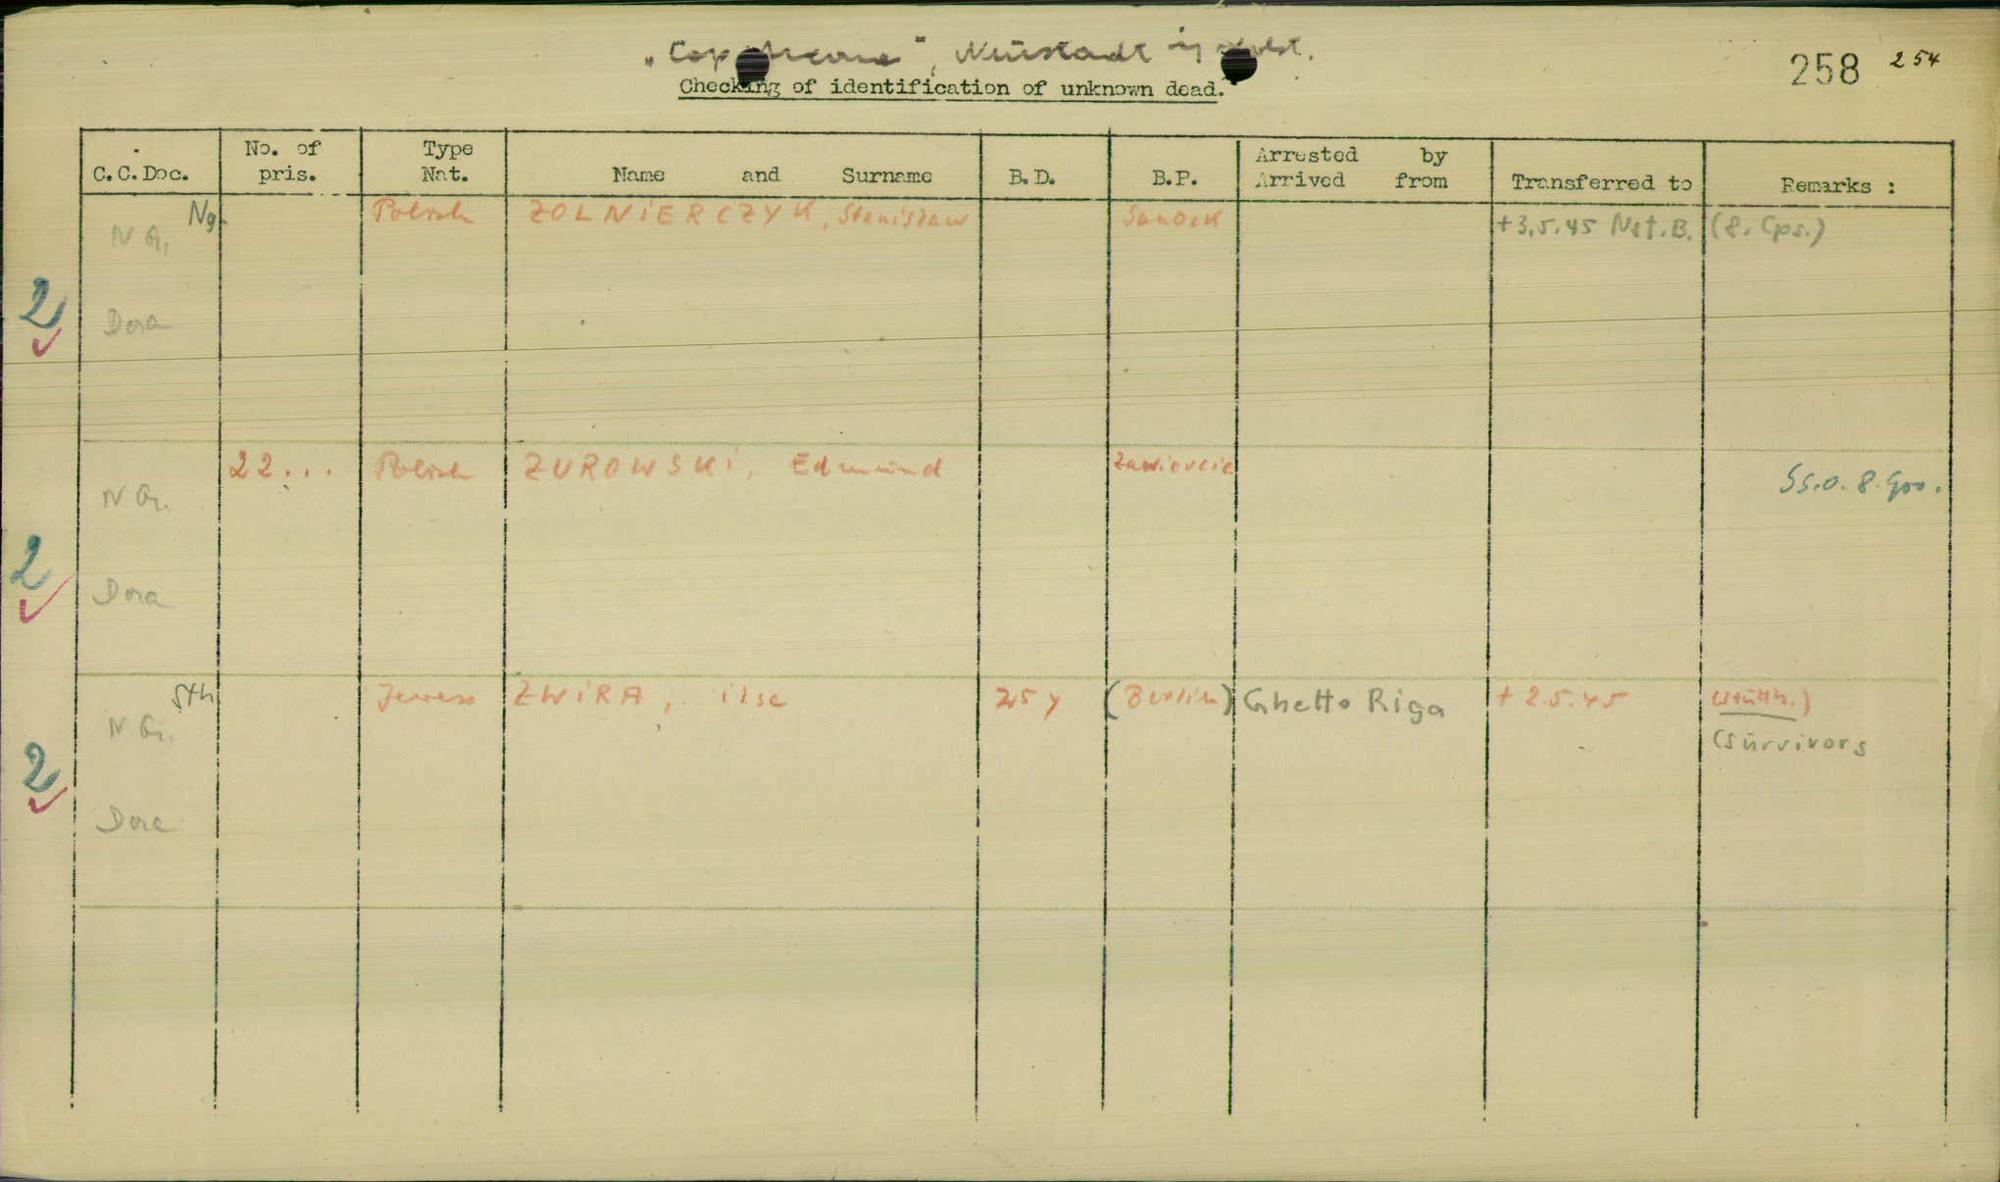 „Cap Arcona“, Neustadt in Holst.
258 254
Checking of identification of unknown dead.
C.C.Doc. No. of pris. Type Nat. Name and Surname B.D. B.P. Arrested by Arrived from Transferred to Remarks :
Ng. Polish ZOLNIERCZYK, Stanislaw Sanock +3.5.45 Nst.B. (8. Cps.)
N G.
2 Dora
22... Polish ZUROWSKI, Edmund Zawiercie
N G.
2 Dora
Sth Jewess ZWIRA, ilse 25 y (Berlin) Ghetto Riga + 2.5.45 (Stutth.)
N G. (Survivors
2 Dora